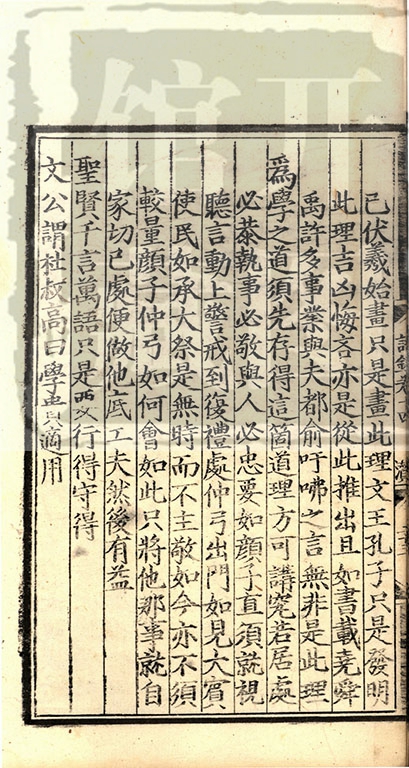 己伏羲始畫只是畫此理文王孔子只是發明
此理吉凶悔吝亦是從此推出且如書載堯舜
禹許多事業與夫都俞吁咈之言無非是此理
爲學之道須先存得這箇道理方可講究若居處
必恭執事必敬與人必忠要如顔子直須就視
聽言動上警戒到復禮處仲弓出門如見大賓
使民如承大祭是無時而不主敬如今亦不須
較量顔子仲弓如何會如此只將他那事就自
家切己處便做他底工夫然後有益
聖賢千言萬語只是要行得守得
文公謂杜叔高曰學貴適用